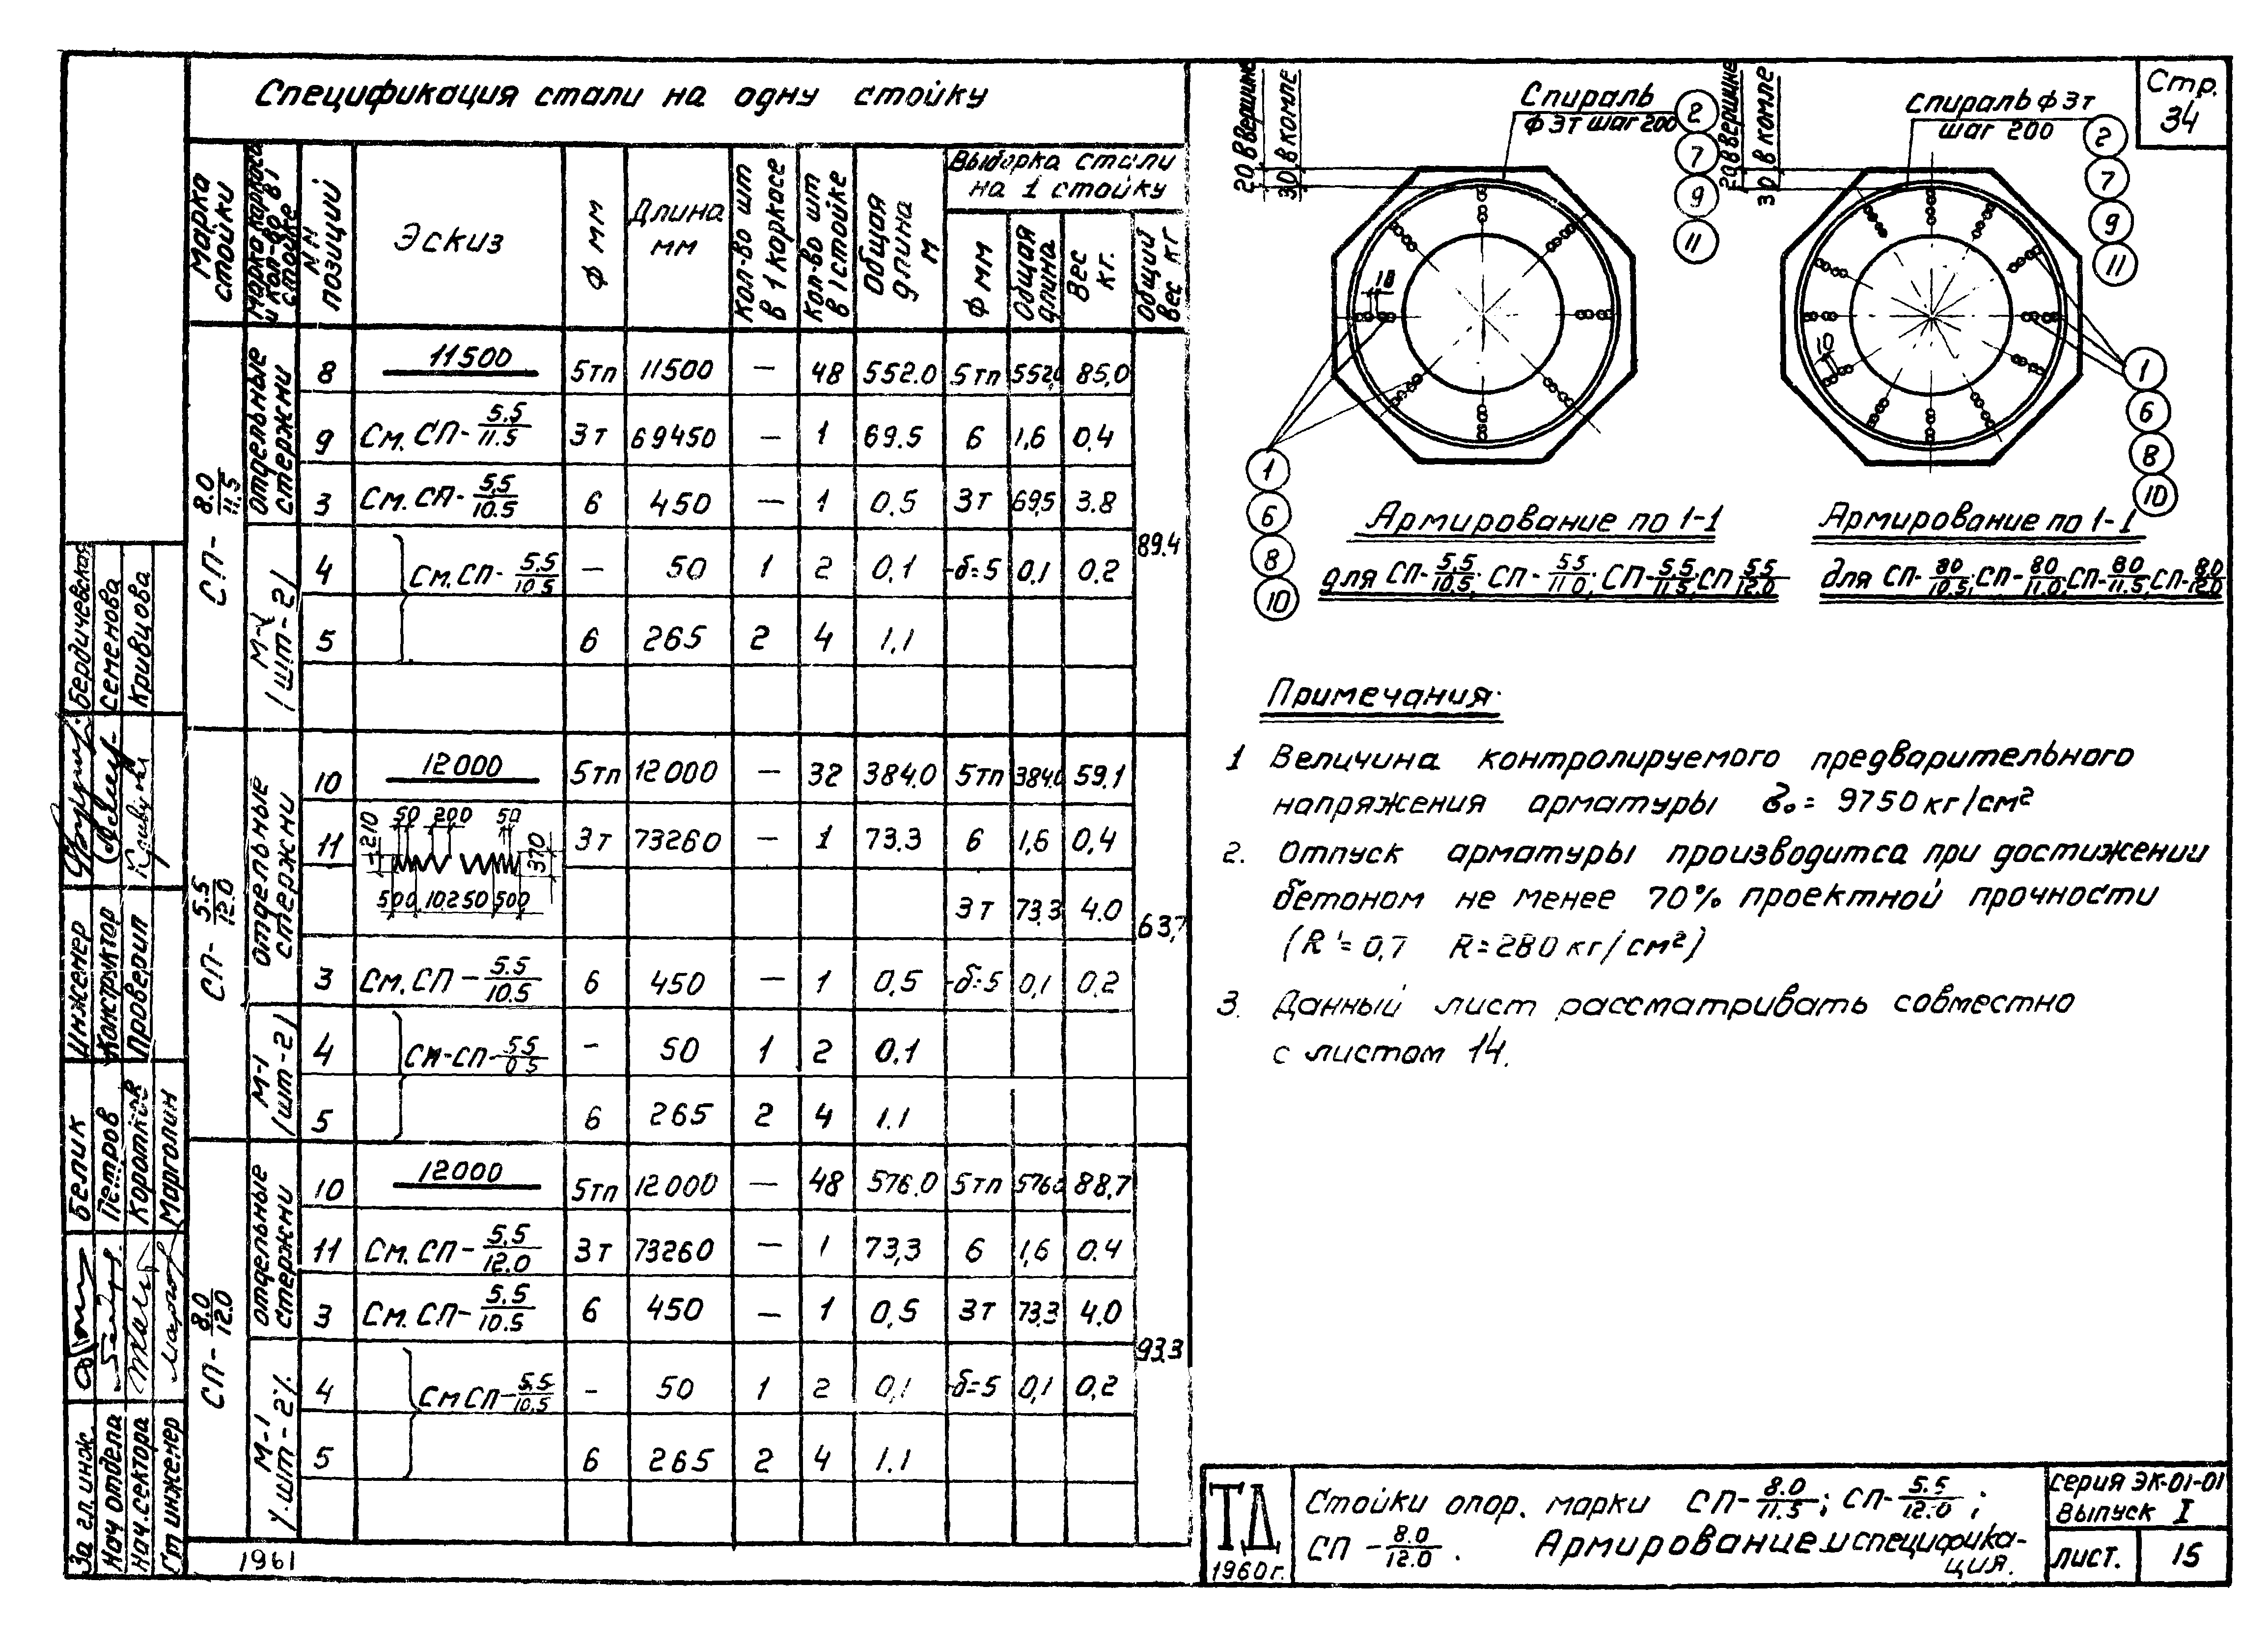 Спецификация стали на одну стойку
Марка стойки | Марка каркаса и кол-во в 1 стойке | NN позиций | Эскиз | ф мм | Длина мм | Кол-во шт в 1 каркасе | Кол-во шт в 1 стойке | Общая длина м | Выборка стали на 1 стойку
ф мм | Общая длина | Вес кг. | Общий вес кг
СП- 8.0/11.5
отдельные стержни
8 | 11500 | 5тп | 11500 | — | 48 | 552.0 | 5тп | 552,0 | 85,0
9 | См. СП- 5.5/11.5 | 3т | 69450 | — | 1 | 69.5 | 6 | 1,6 | 0.4
3 | См. СП- 5,5/10.5 | 6 | 450 | — | 1 | 0.5 | 3т | 69,5 | 3.8
89.4
М-1 /шт-2/
4 | См. СП- 5.5/10.5 | — | 50 | 1 | 2 | 0,1 | -δ=5 | 0,1 | 0.2
5 | 6 | 265 | 2 | 4 | 1,1
СП- 5.5/12.0
отдельные стержни
10 | 12000 | 5тп | 12000 | — | 32 | 384.0 | 5тп | 384.0 | 59.1
11 | 210 50 200 50 370 500 10250 500 | 3т | 73260 | — | 1 | 73.3 | 6 | 1,6 | 0,4
3т | 73,3 | 4.0
63,7
3 | См. СП- 5.5/10.5 | 6 | 450 | — | 1 | 0,5 | -δ=5 | 0,1 | 0,2
М-1 /шт-2/
4 | См-СП- 5.5/0 5 | - | 50 | 1 | 2 | 0.1
5 | 6 | 265 | 2 | 4 | 1.1
СП- 8.0/12.0
отдельные стержни
10 | 12000 | 5тп | 12000 | — | 48 | 576.0 | 5тп | 576.0 | 88,7
11 | См. СП- 5.5/12.0 | 3т | 73260 | — | 1 | 73,3 | 6 | 1,6 | 0.4
3 | См. СП- 5.5/10.5 | 6 | 450 | — | 1 | 0,5 | 3т | 73.3 | 4.0
93.3
М-1 шт-2
4 | См СП- 5,5/10,5 | - | 50 | 1 | 2 | 0,1 | -δ=5 | 0,1 | 0,2
5 | 6 | 265 | 2 | 4 | 1.1
1961
Инженер Бердичевская
Конструктор Семенова
Проверил Кривцова
За гл. инж. Белик
Нач отдела Петров
Нач. сектора Коротков
Ст инженер Марголин
Стр. 34
20 в вершине
30 в комле
Спираль
ф 3т шаг 200
2
7
9
11
18
1
6
8
10
Армирование по 1-1
для СП- 5,5/10,5; СП- 5.5/11 0; СП- 5.5/11.5; СП 5.5/12.0
20 в вершине
30 в комле
Спираль ф 3т
шаг 200
2
7
9
11
10
1
6
8
10
Армирование по 1-1
для СП- 80/10.5; СП- 80/11.0; СП- 80/11.5; СП- 8.0/12.0
Примечания·
1 Величина контролируемого предварительного
напряжения арматуры σ₀= 9750 кг/см²
2. Отпуск арматуры производитса при достижении
бетоном не менее 70% проектной прочности
(R'= 0,7 R=280 кг/см²)
3. Данный лист рассматривать совместно
с листом 14.
ТД
1960 г.
Стойки опор. марки СП- 8.0/11.5; СП- 5.5/12.0;
СП - 8.0/12.0. Армирование и специфика-
ция.
серия ЭК-01-01
Выпуск I
лист. 15